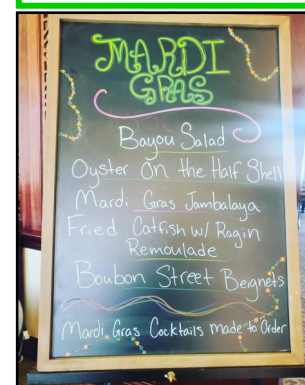 MARDI
GRAS
Bayou Salad
Oyster On the Half Shell
Mardi Gras Jambalaya
Fried Catfish w/ Ragin
Remoulade
Boubon Street Beignets
Mardi Gras Cocktails made to Order